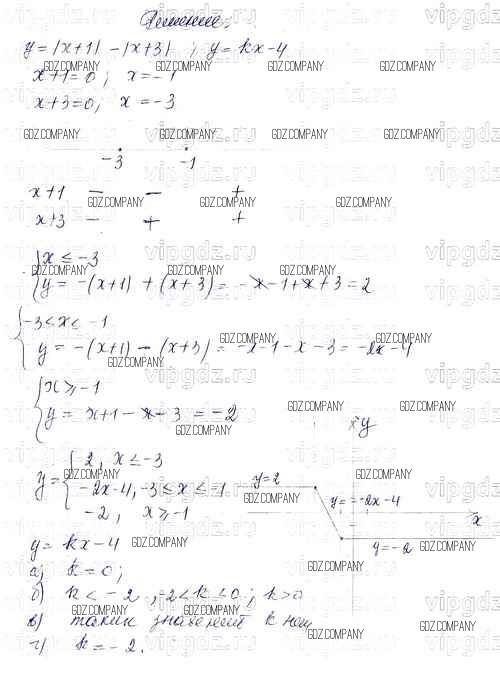 Решение.
y=|x+1| -|x+3| ; y=kx-4
x+1=0; x=-1
x+3=0; x=-3
-3 -1
x+1 - - +
x+3 - + +
{x ≤ -3
y = -(x+1) + (x+3) = -x-1+x+3=2
{-3≤x< -1
y = -(x+1) - (x+3) = -x-1-x-3=-2x-4
{x ≥ -1
y = x+1-x-3 = -2
y
y={2, x ≤ -3
-2x-4, -3 ≤ x ≤ -1
-2, x ≥ -1
y=2
y=-2x-4
x
y=-2
y=kx-4
а) k=0;
б) k<-2, -2<k<0; k>0
в) таких значений k нет
г) k=-2.
GDZ.COMPANY
vipgdz.ru